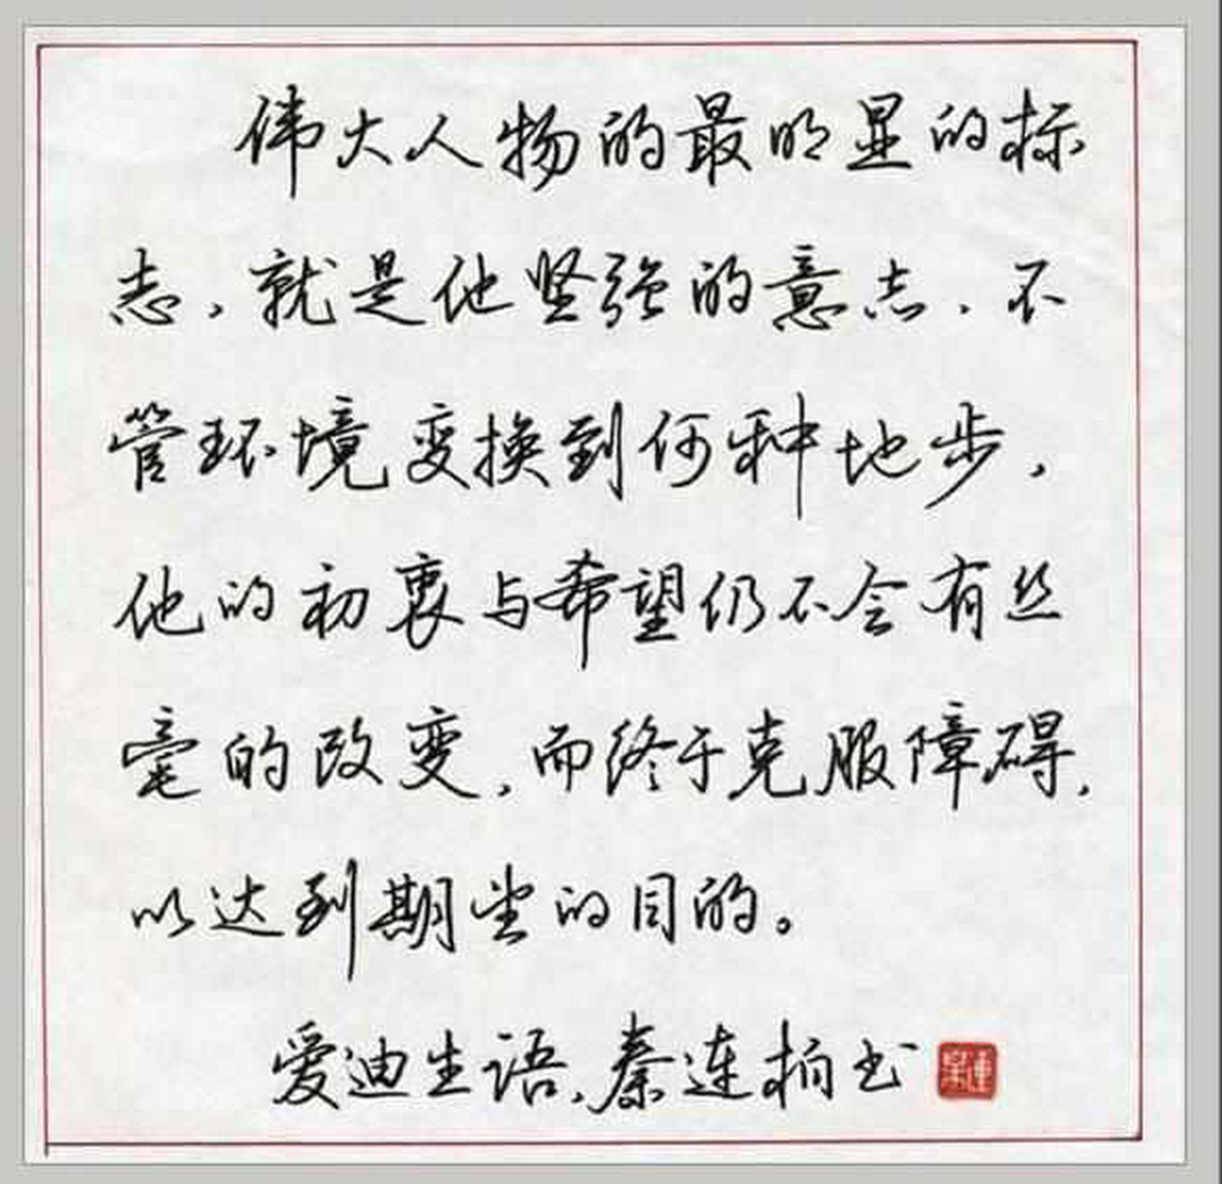 伟大人物的最明显的标
志，就是他坚强的意志，不
管环境变换到何种地步，
他的初衷与希望仍不会有丝
毫的改变，而终于克服障碍，
以达到期望的目的。
爱迪生语，秦连柏书